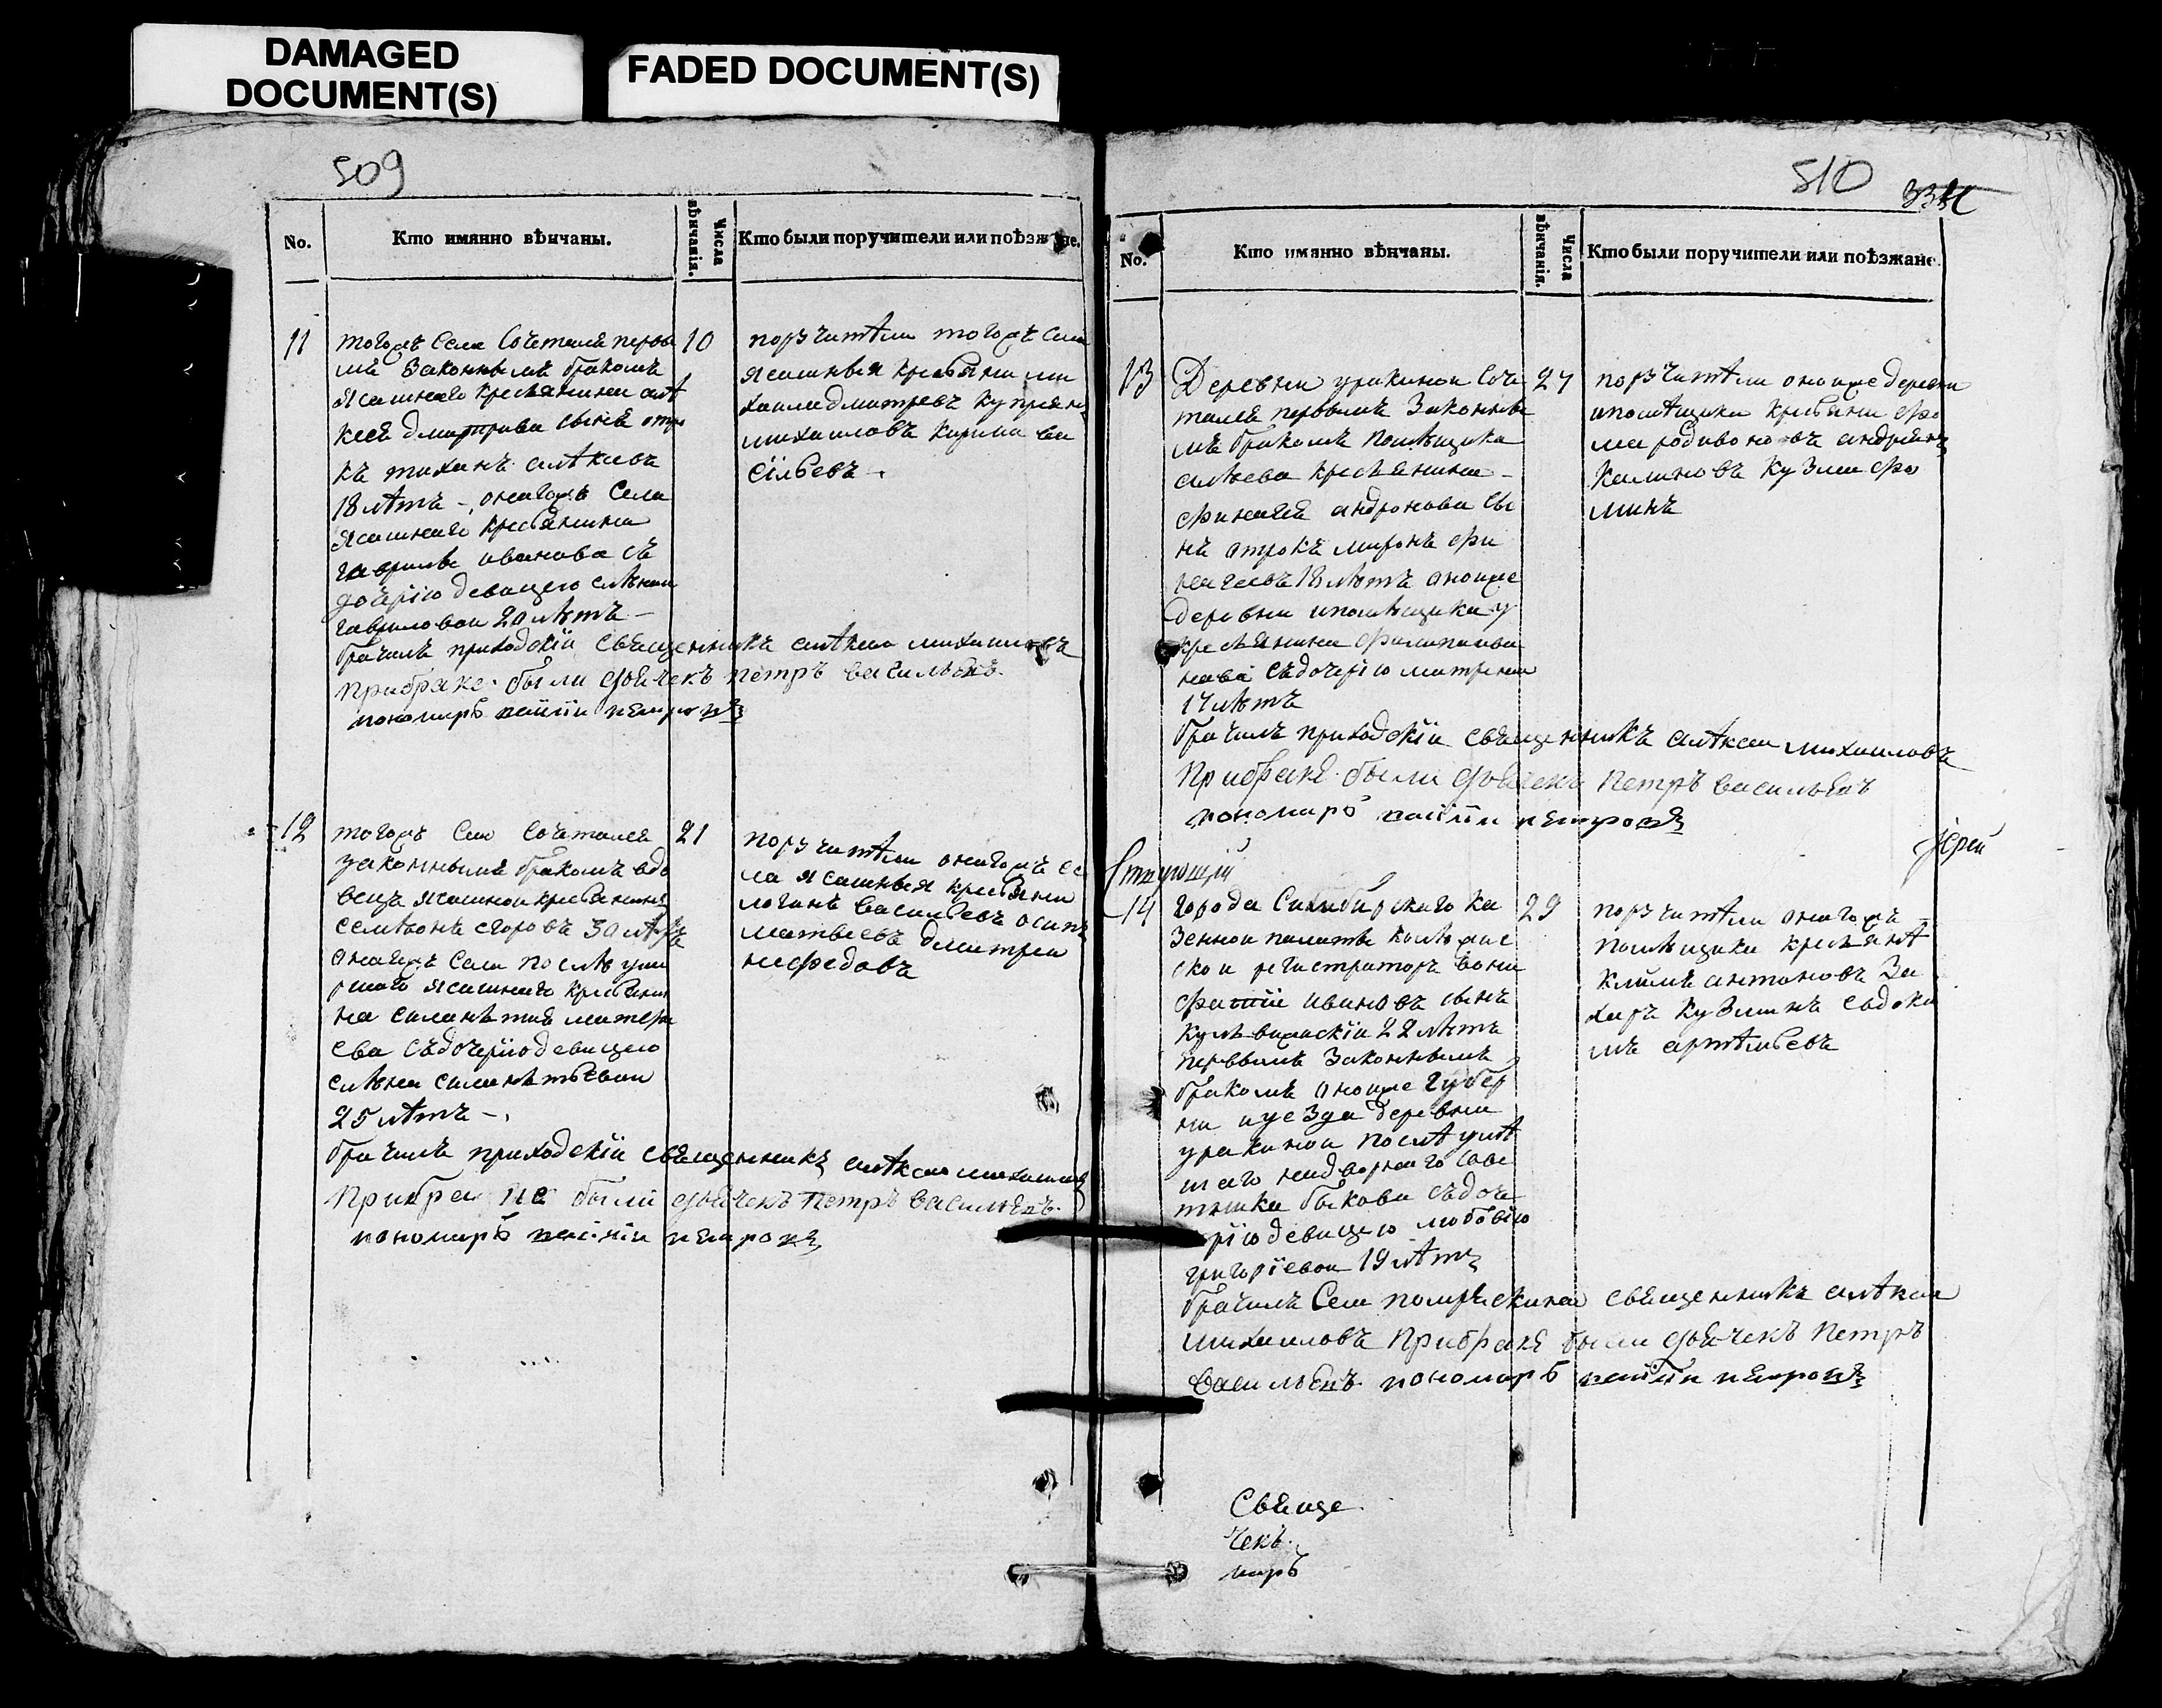 DAMAGED
DOCUMENT(S)
FADED DOCUMENT(S)
509
No.
Кто имянно вѣнчаны.
Числа вѣнчанія.
Кто были поручители или поѣзжане.
11
тогожъ села сочетался первы
мъ законнымъ бракомъ
ясашнаго крестьянина алѣ
ксея дмитриева сынъ отро
къ тиханъ алѣксевъ
18 лѣтъ –, онагожъ села
ясашнаго крестьянина
гаврилы иванова съ
дочерїю девицею еленои
гавриловои 20 лѣтъ –
10
поручители тогожъ села
ясашныя крестьяни ми
хаила дмитревъ купреянъ
михаиловъ кирила ва
сїльевъ
брачилъ приходскїи свѣщенникъ алѣксеи михаиловъ
прибраке были дьячекъ петръ васильевъ
пономарь петровъ
12
тогожъ села сочетался
законнымъ бракомъ вдо
вецъ ясашнои крестьянинъ
семионъ егоровъ 30 лѣтъ
онагожъ села послѣ уме
ршаго ясашнаго крестьяни
на
ева съдочерїю девицею
еленои
25 лѣтъ –,
21
поручители онагожъ се
ла ясашныя крестьяни
логинъ васильевъ осипъ
матвеевъ дмитреи
нефедовъ
брачилъ приходскїи свѣщенникъ алѣксеи михаиловъ
прибраке были дьячекъ петръ васильевъ
пономарь петровъ
510
No.
Кто имянно вѣнчаны.
Числа вѣнчанія.
Кто были поручители или поѣзжане.
13
Деревни уракинои соче
тался первымъ законны
мъ бракомъ помѣщика
крестьянина
андронова сы
нъ отрокъ миронъ фи
18 лѣтъ оноиже
деревни ипомѣщика у
крестьянина
съдочерїю матреною
17 лѣтъ
27
поручители оноиже деревни
ипомѣщики крестьяни фо
ма родивоновъ андреянъ
калиновъ кузма фо
минъ
брачилъ приходскїи свѣщенникъ алѣксеи михаиловъ
прибраке были дьячекъ петръ васильевъ
пономарь петровъ
Іерей
14
города Симбирскаго ка
зеннои палаты колѣжс
скои регистраторъ вони
фатїи ивановъ сынъ
22 лѣтъ
первымъ законнымъ
бракомъ оноиже губер
ни иуезда деревни
уракинои послѣ умѣ
шаго надворнаго сове
тника быкова съдоче
рїю девицею любовїю
григорїевои 19 лѣтъ
29
поручители онагожъ
помѣщика крестьянѣ
климъ антоновъ за
харъ кузминъ евдоки
мъ артѣмьевъ
брачилъ села свѣщенникъ алѣксеи
михаиловъ прибраке были дьячекъ петръ
васильевъ пономарь петровъ
Свѣще
чекъ
марь